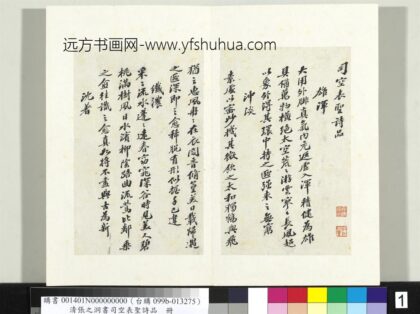 远方书画网-www.yfshuhua.com
司空表聖詩品
雄渾
大用外腓真氣内充返虛入渾積健為雄
具備萬物橫絕太空荒〻油雲寥〻長風超
以象外得其環中持之匪强來之無窮
沖淡
素處以默妙機其微飲之太和獨鶴與飛
猶之惠風荏苒在衣閱音修篁美曰載歸遇
之匪深即之愈稀脫有形似握手已違
纖濃
采〻流水蓬〻遠春窈窕深谷時見美人碧
桃滿樹風日水濱柳陰路曲流鶯比鄰乘
之愈往識之愈真如將不盡與古為新
沈著
購書 001401N000000000 (台購 099b-013275)
清張之洞書司空表聖詩品 冊
1